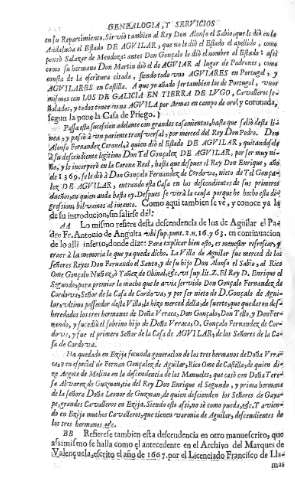 GENEALOGIA, Y SERVICIOS
en su Repartimiento. Sirvió tambien al Rey Don Alonso el Sabio, que le dió en la
Andalucia el Estado DE AGUILAR, que no le dió el Estado el apellido, como
pensò Salazar de Mendoza; antes Don Gonçalo le diò el nombre al Estado: assi
como su hermano Don Martin diò el de AGUIAR al lugar de Pedrones, como
consta de la escritura citada, siendo todo uno AGUIARES en Portugal, y
AGUILARES en Castilla. A que yo añado ser tambien los de Portugal, unos
mismos con LOS DE GALICIA EN TIERRA DE LUGO, Cavalleros se-
ñalados, y todos tener una AGUILA por Armas en campo de oro, y coronada,
segun la pone la Casa de Priego.)
Passa esta sucession adelante con grandes casamientos, hasta que saliò desta li-
nea, y passò à un pariente transversal, por merced del Rey Don Pedro. Don
Alonso Fernandez Coronel, à quien diò el Estado DE AGUILAR, quitandose
à su descendiente legitimo Don Tel Gonçalez DE AGUILAR, por ser muy ni-
ño, y le incorporò en la Corona Real, hasta que despues el Rey Don Enrique, y año
de 1369. se le diò à Don Gonçalo Fernandez de Cordova, nieto de Tel Gonça-
lez DE AGUILAR, entrando esta Casa en los descendientes de sus primeros
dueños, en quien anda hasta oy. Despues se verà la causa porque he hecho esta di-
gression bolvamos al intento. Como aqui tambien se vè, y conoce ya la
de su introducion, sin salirse dèl:
AA Lo mismo refiere desta descendencia de los de Aguilar el Pa-
dre Fr. Antonio de Anguita ubi sup. punt. 2. n. 16. y 63. en continuacion
de lo allì inserto, donde dize: Para explicar bien esto, es menester refrescar, y
traer à la memoria lo que ya queda dicho. La Villa de Aguilar fue merced de los
señores Reyes Don Fernando el Santo, y de su hijo Don Alonso el Sabio, al Rico
Ome Gonçalo Nuñez, à Yañez de Obinal, &c. ut sup. lit. Z. El Rey D. Enrique el
Segundo, para premiar lo mucho que le avia servido Don Gonçalo Fernandez de
Cordova, Señor de la Casa de Cordova, y por ser nieto de D. Gonçalo de Agui-
lar, ultimo possehedor desta Villa, le hizo merced della de suerte, que quedaron des-
heredados los tres hermanos de Doña Veraca, Don Gonçalo, Don Tello, y Don Fer-
nando, y sucediò el sobrino hijo de Doña Veraca, D. Gonçalo Fernandez de Cor-
dova, y fue el primero Señor de la Casa de AGUILAR, de los Señores de la Ca-
sa de Cordova.
Ha quedado en Ezija fecunda generacion de los tres hermanos de Doña Vera-
ca, y en especial de Fernan Gonçalez de Aguilar, Rico Ome de Castilla, de quien di-
ze Argote de Molina en la descendencia de los Manueles, que casò con Doña Tere-
sa Alvarez de Guzman, tia del Rey Don Enrique el Segundo, y prima hermana
de la señora Doña Leonor de Guzman, de quien descienden los Señores de Gaya-
pe, grandes Cavalleros en Ezija. Siendo esto assi, no sè como pueda, &c. Y avien-
do en Ezija muchos Cavalleros, que tienen varonia de Aguilar, descendientes de
los tres hermanos, &c.
BB Refierese tambien esta descendencia en otro manuscrito, que
assimismo se halla como el antecedente en el Archivo del Marques de
Valençuela, escrito el año de 1667. por el Licenciado Francisco de Lla-
mas